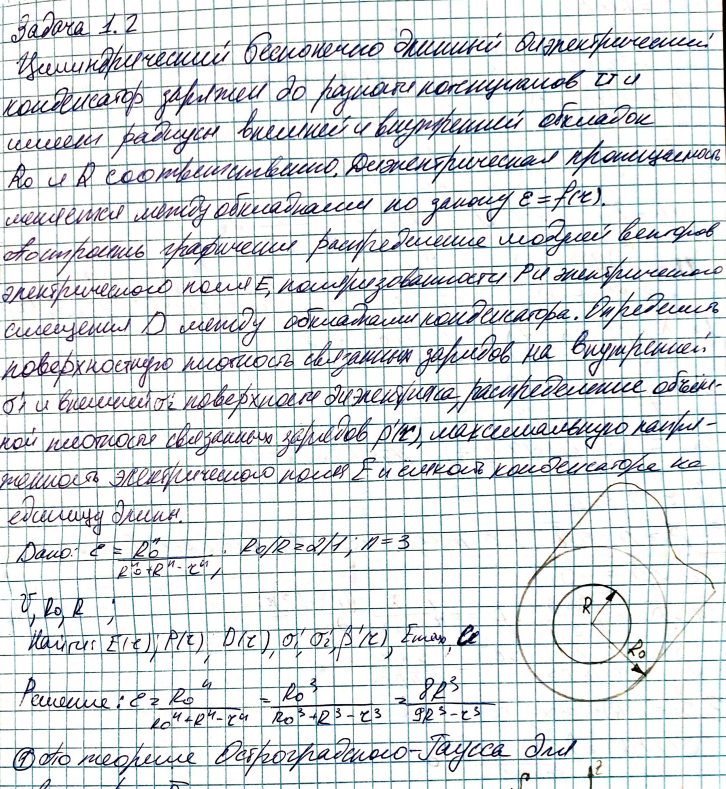 Задача 1.2
Цилиндрический бесконечно длинный диэлектрический
конденсатор заряжен до разности потенциалов U и
имеет радиусы внешней и внутренней обкладок
R₀ и R соответственно. Диэлектрическая проницаемость
меняется между обкладками по закону ε=f(r).
Построить графически распределение модулей векторов
электрического поля E, поляризованности P и электрического
смещения D между обкладками конденсатора. Определить
поверхностную плотность связанных зарядов на внутренней
σ₁' и внешней σ₂' поверхности диэлектрика, распределение объём-
ной плотности связанных зарядов ρ'(r), максимальную напря-
женность электрического поля E и ёмкость конденсатора на
единицу длины.
Дано: ε = R₀ⁿ / (R₀ⁿ+Rⁿ-rⁿ), R₀/R=2/1; n=3
U, R₀, R ;
Найти: E(r), P(r), D(r), σ₁', σ₂', ρ'(r), Emax, C
Решение: ε = R₀ⁿ / (R₀ⁿ+Rⁿ-rⁿ) = R₀³ / (R₀³+R³-r³) = 8R³ / (9R³-r³)
① По теореме Остроградского-Гаусса для
R
R₀
2